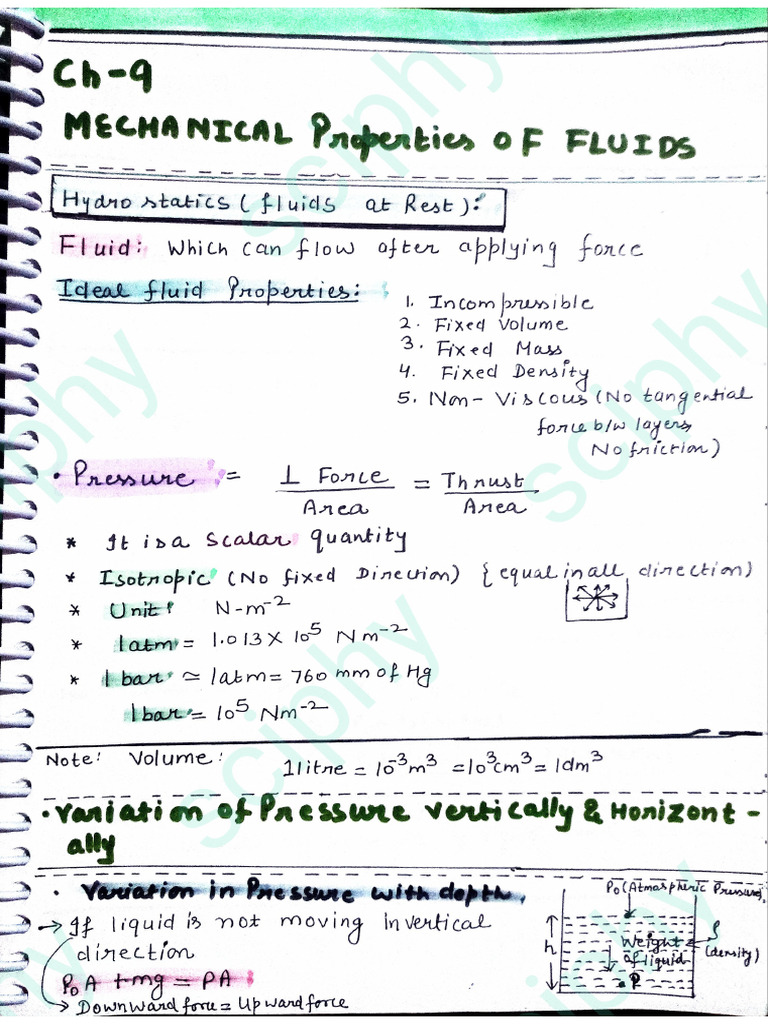 Ch-9
MECHANICAL Properties OF FLUIDS
Hydrostatics (fluids at Rest):
Fluid: Which can flow after applying force
Ideal fluid Properties:
1. Incompressible
2. Fixed Volume
3. Fixed Mass
4. Fixed Density
5. Non-Viscous (No tangential
force b/w layers
No friction)
• Pressure = ⊥ Force / Area = Thrust / Area
* It is a Scalar quantity
* Isotropic (No fixed Direction) {equal in all direction)
* Unit: N-m⁻²
* 1atm = 1.013 × 10⁵ Nm⁻²
* 1 bar ≃ 1atm = 760 mm of Hg
1bar = 10⁵ Nm⁻²
Note: Volume: 1litre = 10⁻³m³ = 10³cm³ = 1dm³
• Variation of Pressure vertically & Horizont-
ally
• Variation in Pressure with depth,
→ If liquid is not moving in vertical
direction
P₀A + mg = PA
→ Downward force = Upward force
P₀ (Atmospheric Pressure)
h
Weight
of liquid
ρ
(density)
• P
sciphy
sciphy
sciphy
sciphy